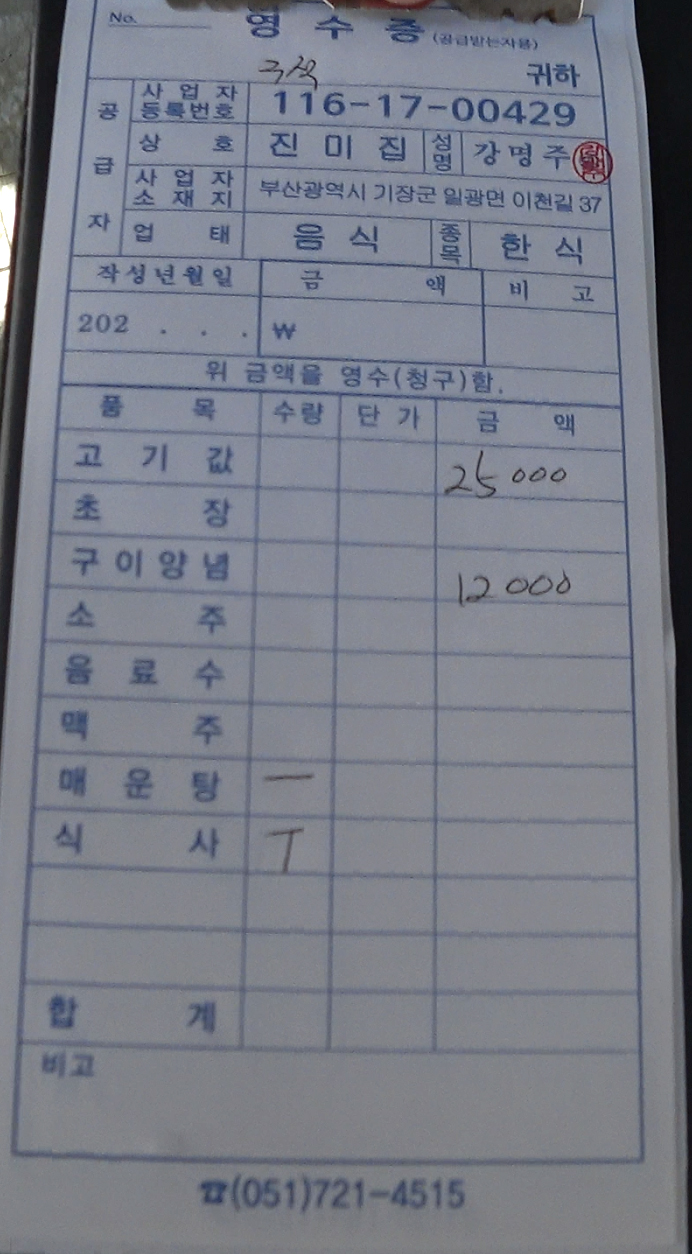 No.
영수증 (공급받는자용)
귀하
공급자
사업자등록번호 116-17-00429
상호 진미집 성명 강명주
사업자소재지 부산광역시 기장군 일광면 이천길 37
업태 음식 종목 한식
작성년월일 금액 비고
202 . . . ₩
위 금액을 영수(청구)함.
품목 수량 단가 금액
고기값 25000
초장
구이양념 12000
소주
음료수
맥주
매운탕 一
식사 T
합계
비고
☎(051)721-4515